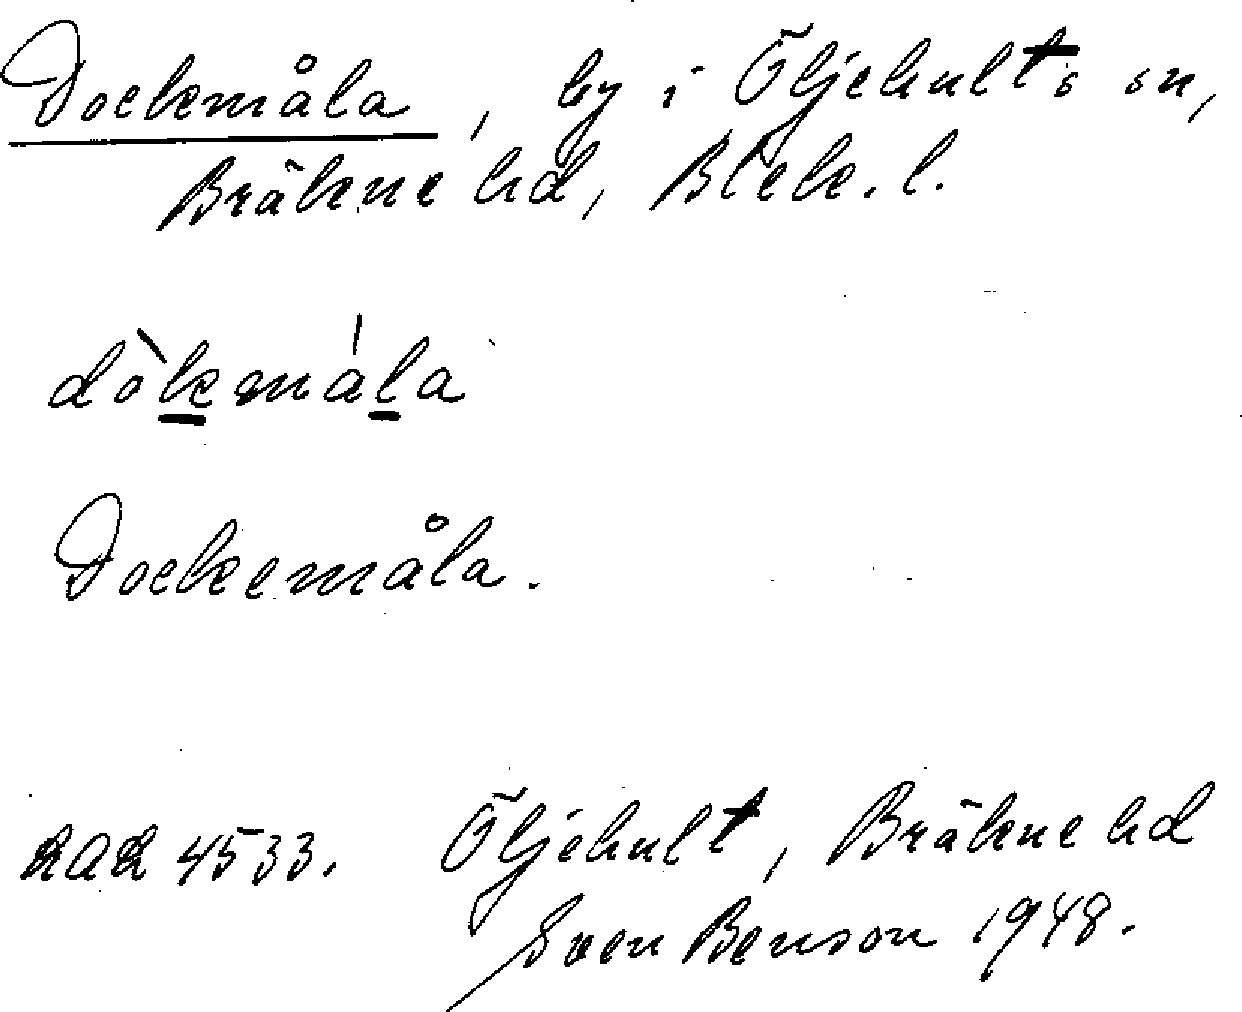 Dockemåla, by i Öljehults sn,
Bräkne hd, Blek. l.
dòkemála
Dockemåla.
RAÄ 4533. Öljehult, Bräkne hd
Sven Benson 1948.